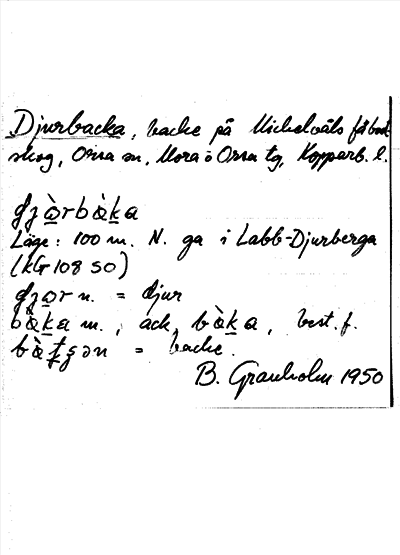 Djurbacka, backe på Michelvåls fäbod
skog, Orsa sn, Mora o Orsa tg, Kopparb. l.
ɠȷå̱̀rbà̱ka
Läge: 100 m. N. ga i Labb-Djurberga
(KG 108 SO)
n. = djur
m., ack. bàka, best. f.
= backe.
B. Granholm 1950